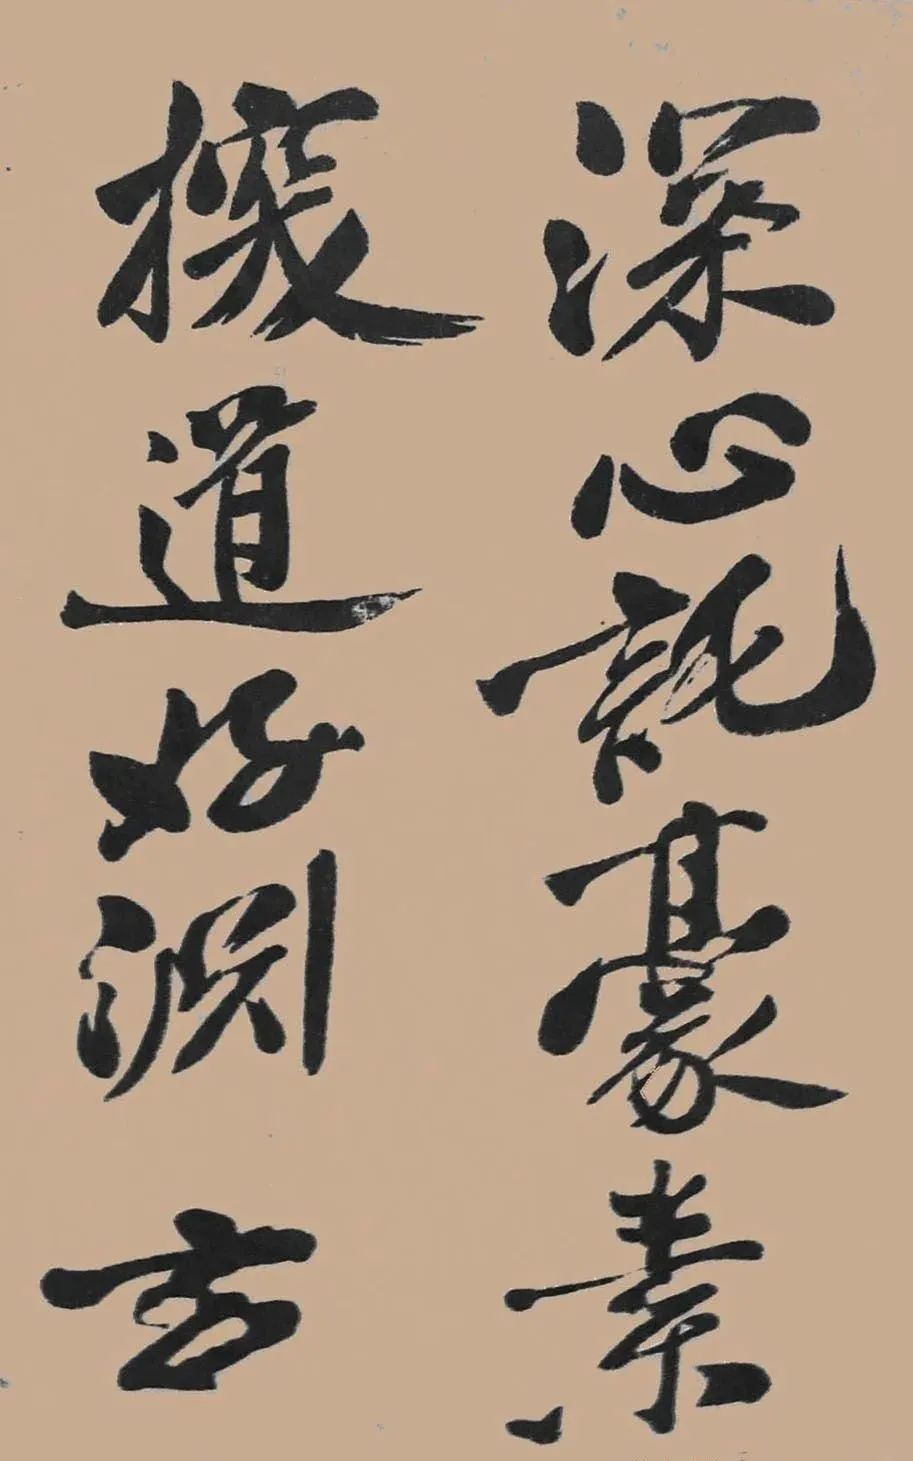 深心託豪素
擬道好淵玄